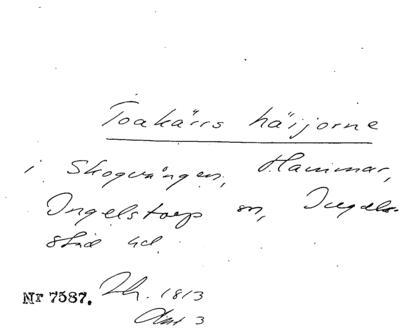 Toakärrs häijorne
i Skogvången, Hammar,
Ingelstorp sn, Ingel-
stad hd
Nr 7587. 1813
3